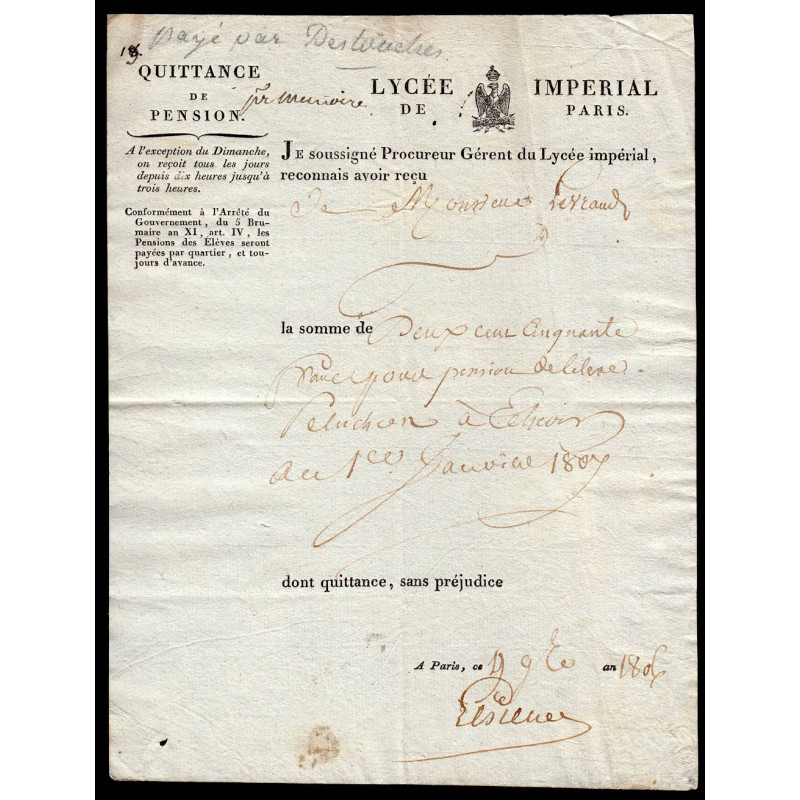 payé par Destouches
QUITTANCE
DE
PENSION.
pr memoire
A l'exception du Dimanche,
on reçoit tous les jours
depuis dix heures jusqu'à
trois heures.
Conformément à l'Arrêté du
Gouvernement, du 5 Bru-
maire an XI, art. IV, les
Pensions des Élèves seront
payées par quartier, et tou-
jours d'avance.
LYCÉE IMPERIAL
DE PARIS.
JE soussigné Procureur Gérent du Lycée impérial,
reconnais avoir reçu
de Monsieur
la somme de Deux cent cinquante
francs pour pension de l'eleve
à Echeoir
au 1er Janvier 1807
dont quittance, sans préjudice
A Paris, ce 19 9bre an 1806